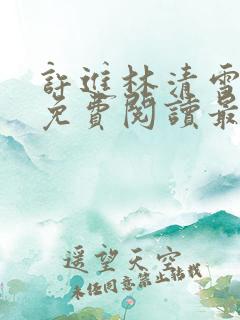 許進林清雪
免費閱讀最
遥望天空
未经同意禁止转载